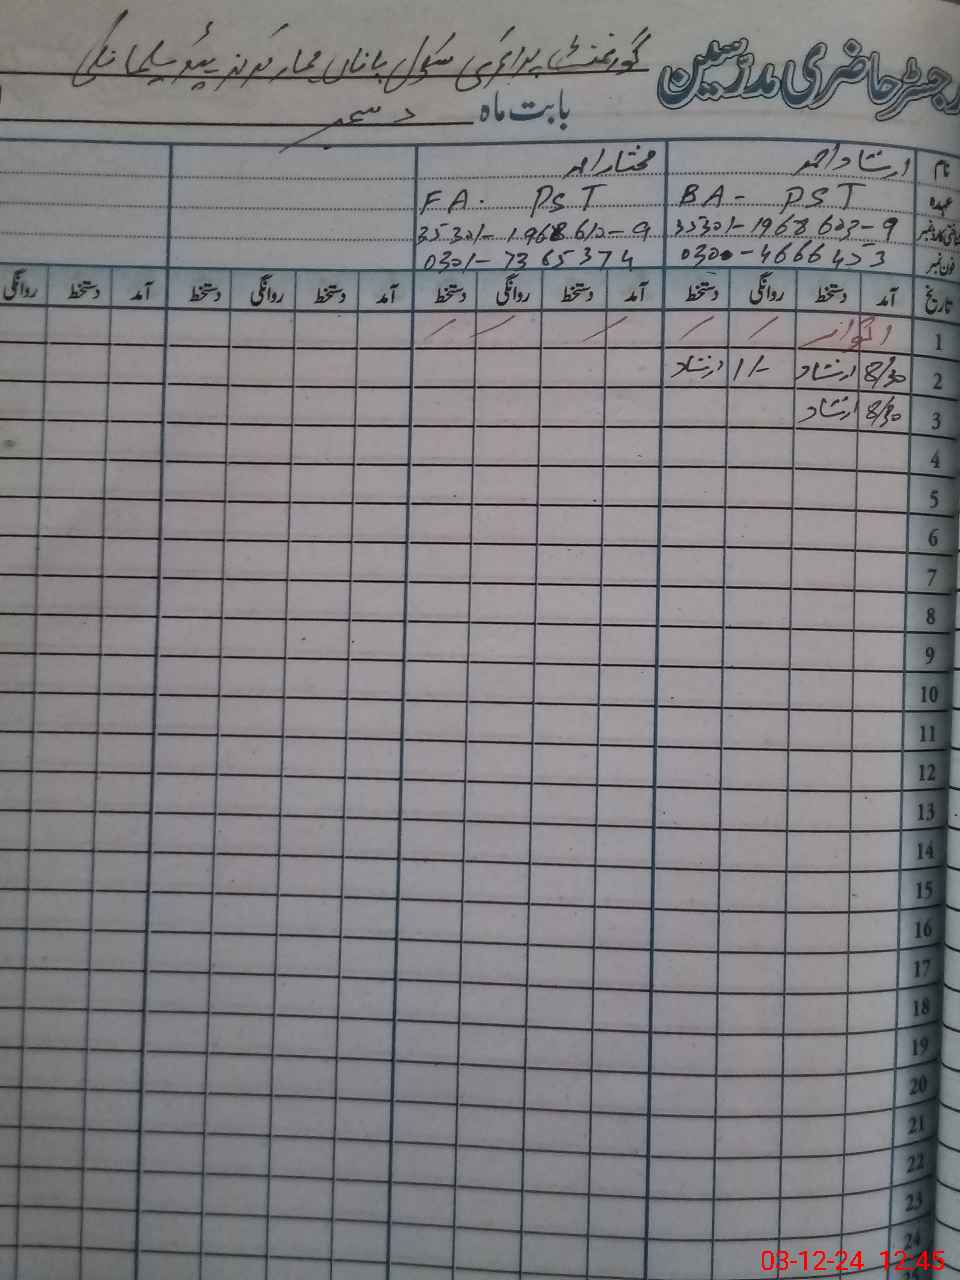 رجسٹر حاضری مدرسین گورنمنٹ پرائمری سکول
بابت ماہ دسمبر
نام ارشاد احمد مختار احمد
عہدہ BA - PST FA. PST
35301-1968623-9 35301-1968612-9
فون نمبر 0300-4666453 0301-7365374
تاریخ آمد دستخط روانگی دستخط آمد دستخط روانگی دستخط آمد دستخط روانگی دستخط آمد دستخط روانگی
1 اتوار
2 8/30 ارشاد 1/- ارشاد
3 8/30 ارشاد
4
5
6
7
8
9
10
11
12
13
14
15
16
17
18
19
20
21
22
23
24
03-12-24 12:45